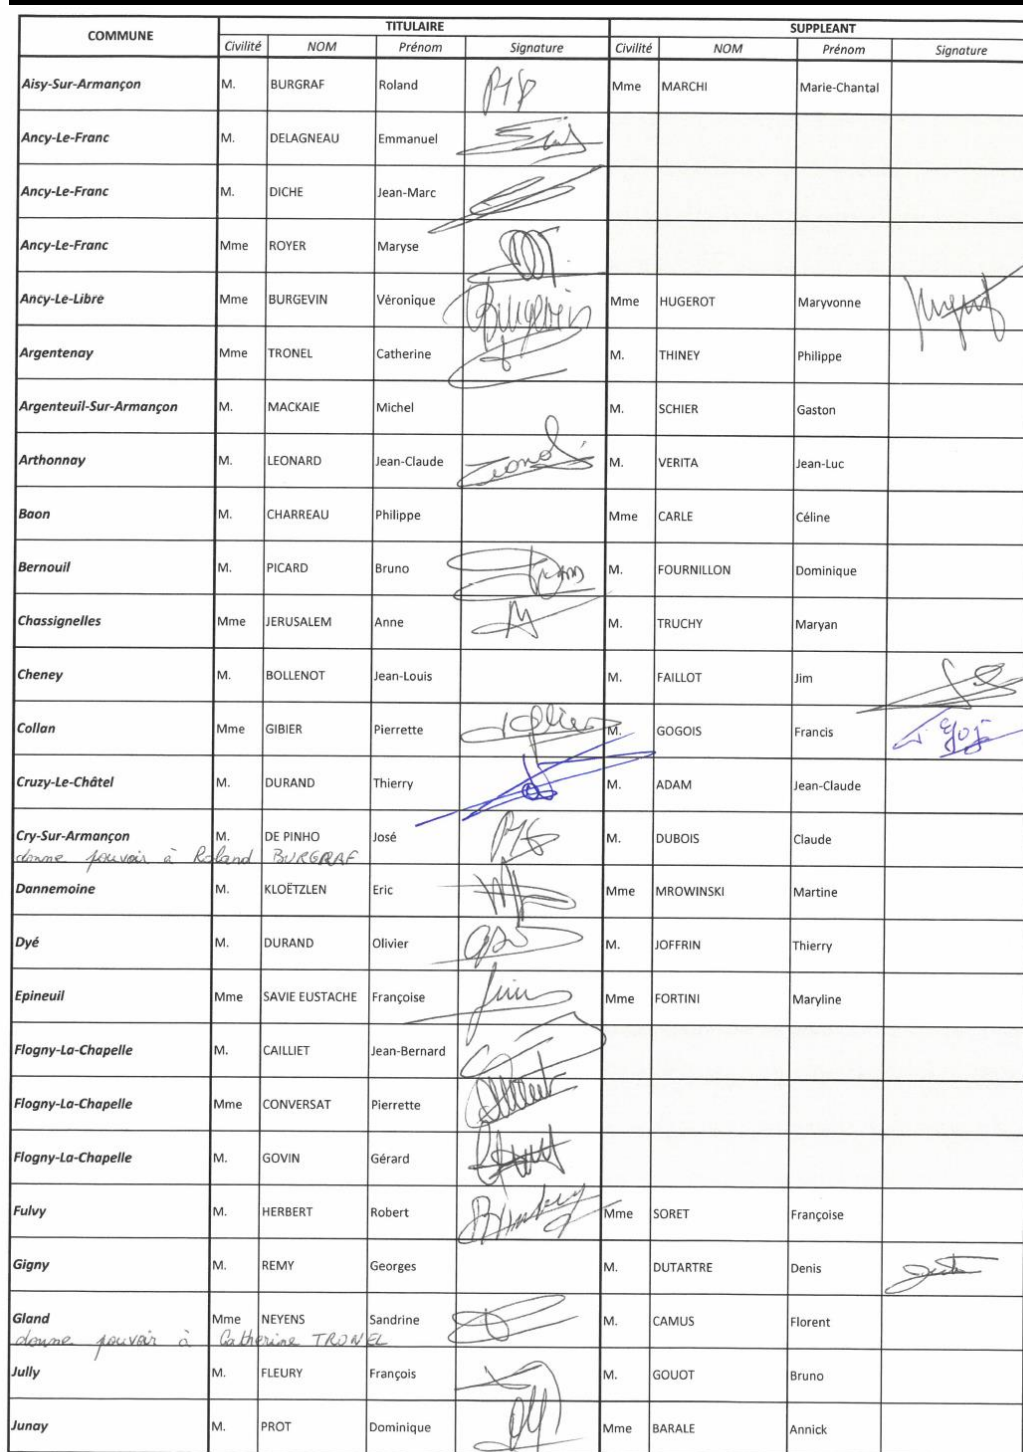 COMMUNE TITULAIRE SUPPLEANT
Civilité NOM Prénom Signature Civilité NOM Prénom Signature
Aisy-Sur-Armançon M. BURGRAF Roland Mme MARCHI Marie-Chantal
Ancy-Le-Franc M. DELAGNEAU Emmanuel
Ancy-Le-Franc M. DICHE Jean-Marc
Ancy-Le-Franc Mme ROYER Maryse
Ancy-Le-Libre Mme BURGEVIN Véronique Burgevin Mme HUGEROT Maryvonne
Argentenay Mme TRONEL Catherine M. THINEY Philippe
Argenteuil-Sur-Armançon M. MACKAIE Michel M. SCHIER Gaston
Arthonnay M. LEONARD Jean-Claude M. VERITA Jean-Luc
Baon M. CHARREAU Philippe Mme CARLE Céline
Bernouil M. PICARD Bruno M. FOURNILLON Dominique
Chassignelles Mme JERUSALEM Anne M. TRUCHY Maryan
Cheney M. BOLLENOT Jean-Louis M. FAILLOT Jim
Collan Mme GIBIER Pierrette M. GOGOIS Francis
Cruzy-Le-Châtel M. DURAND Thierry M. ADAM Jean-Claude
Cry-Sur-Armançon M. DE PINHO José M. DUBOIS Claude
donne pouvoir à Roland BURGRAF
Dannemoine M. KLOËTZLEN Eric Mme MROWINSKI Martine
Dyé M. DURAND Olivier M. JOFFRIN Thierry
Epineuil Mme SAVIE EUSTACHE Françoise Mme FORTINI Maryline
Flogny-La-Chapelle M. CAILLIET Jean-Bernard
Flogny-La-Chapelle Mme CONVERSAT Pierrette
Flogny-La-Chapelle M. GOVIN Gérard
Fulvy M. HERBERT Robert Mme SORET Françoise
Gigny M. REMY Georges M. DUTARTRE Denis
Gland Mme NEYENS Sandrine M. CAMUS Florent
donne pouvoir à Catherine TRONEL
Jully M. FLEURY François M. GOUOT Bruno
Junay M. PROT Dominique Mme BARALE Annick